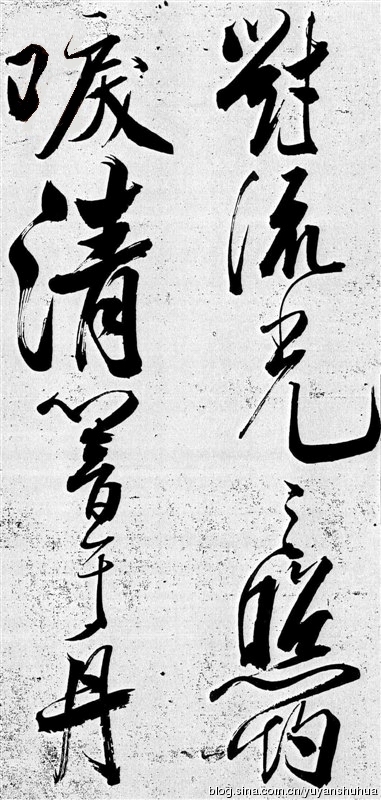 對流光之照灼
唳清響于丹
blog.sina.com.cn/yuyanshuhua